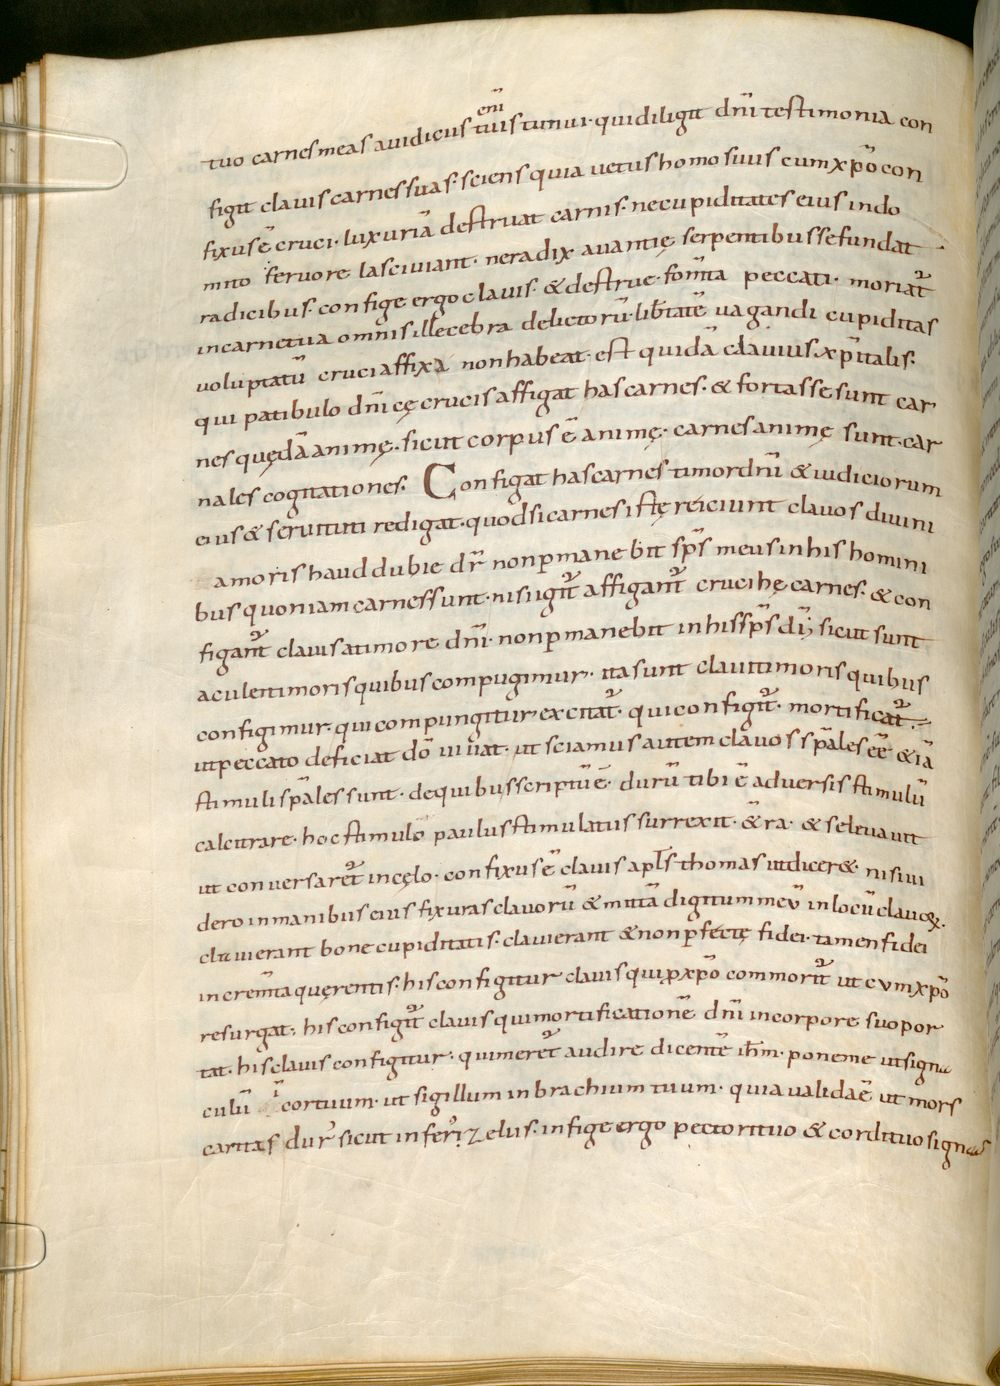 tuo carnes meas a iudiciis eni᷉ tuis timui · qui diligit dn̄i testimonia con
figit clauis carnes suas · sciens quia uetus homo suus cum xp̄o con
fixus ē cruci · luxuriā destruat carnis · ne cupiditates eius indo
mito feruore lasciuiant · ne radix auaritię serpentibus se fundat
radicibus · confige ergo clauis · & destrue fom̄ta peccati · moriat᷑
in carne tua omnis illecebra delictorū · lib̄tatē uagandi cupiditas
uoluptatū cruci affixa non habeat · est quidā clauus xp̄italis ·
qui patibulo dn̄icę crucis affigat has carnes · & fortasse sunt car
nes quędā animę · sicut corpus ē animę · carnes animę sunt · car
nales cogitationes · Configat has carnes timor dn̄i & iudiciorum
eius & seruituti redigat · quod si carnes istę reiciunt clauos diuini
amoris haud dubie dr̄ non ꝑmanebit sp̄s meus in his homini
bus quoniam carnes sunt · nisi igit᷑ affigant᷑ cruci hę carnes · & con
figant᷑ clauis a timore dn̄i · non ꝑmanebit in his sp̄s dī; sicut sunt
aculei timoris quibus compugimur · ita sunt claui timoris quibus
configimur · qui compungitur excitat᷑ · qui configit᷑ · mortificat᷑ ·
ut peccato deficiat dō uiuat · ut sciamus autem clauos sp̄ales eē̄ & iā
stimuli sp̄ales sunt · de quibus scriptū ē · durū tibi ē aduersis stimulū
calcitrare · hoc stimulo paulus stimulatus surrexit · & ra · & se leuauit
ut conuersaret᷑ in cęlo · confixus ē clauis apl̄s thomas ut dicer& · nisi ui
dero in manibus eius fixuras clauorū & mittā digitum meū in locū clauoꝝ ·
clauierant bone cupiditatis · clauierant & non ꝑfectę fidei · tamen fidei
increm̄ta quęrentis · his configitur clauis qui ꝑ xp̄o commorit᷑ ut cum xp̄o
resurgat · his configit᷑ clauis qui mortificationē dn̄i in corpore suo por
tat · his clauis configitur · qui meret᷑ audire dicentē ih̄m · pone me ut signa
culū i cor tuum · ut sigillum in brachium tuum · quia ualida ē ut mors
caritas dur᷑ sicut inferi zelus · infige ergo pectori tuo & cordi tuo signac